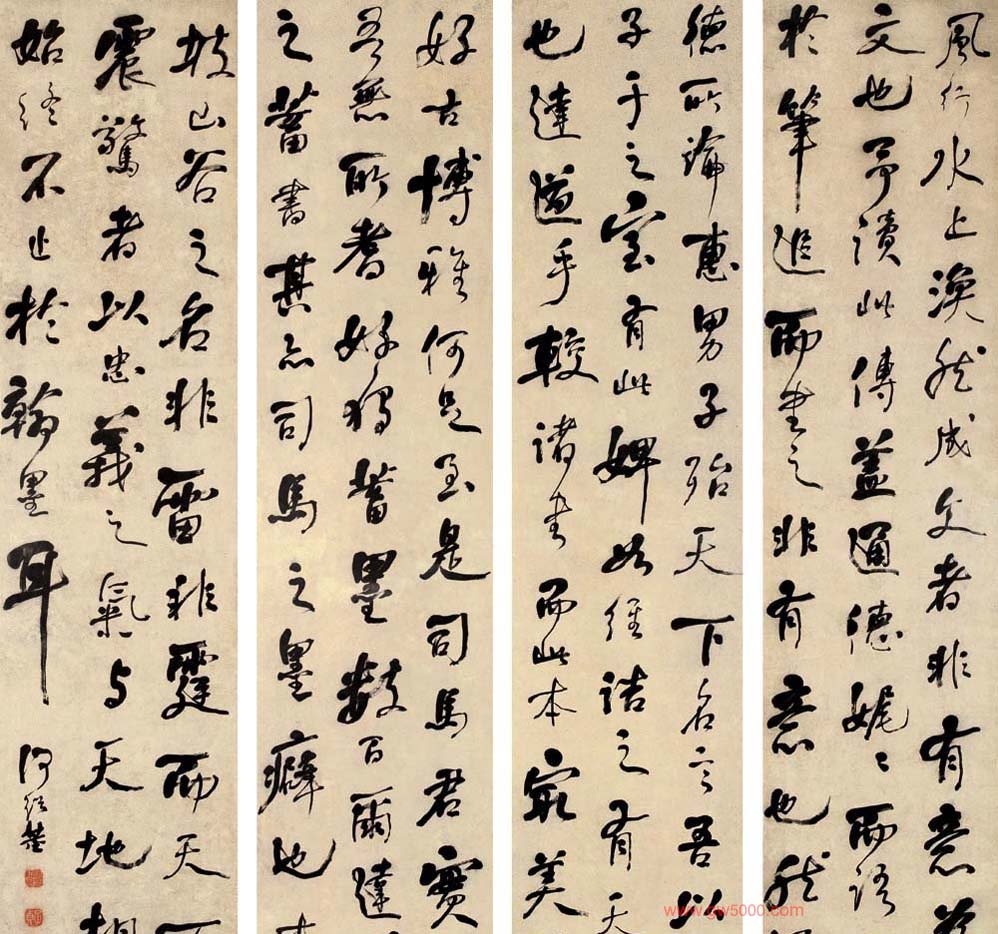 風行水上渙然成文者非有意於
文也予讀此傳蓋通德娓〻而語
於筆追而書之非有意也然
德所論惠男子殆天下名言吾以
子于之室有此婢如維詰之有天
也達道乎較諸本而此本最美
好古博雅何足至是司馬君實
吾無所耆好獨蓄墨數百爾達
之蓄書其亦司馬之墨癖也
坡山谷之名非雷非霆而天下
震驚者以忠義之氣与天地相
始終不止於翰墨耳
何紹基
www.gw5000.com